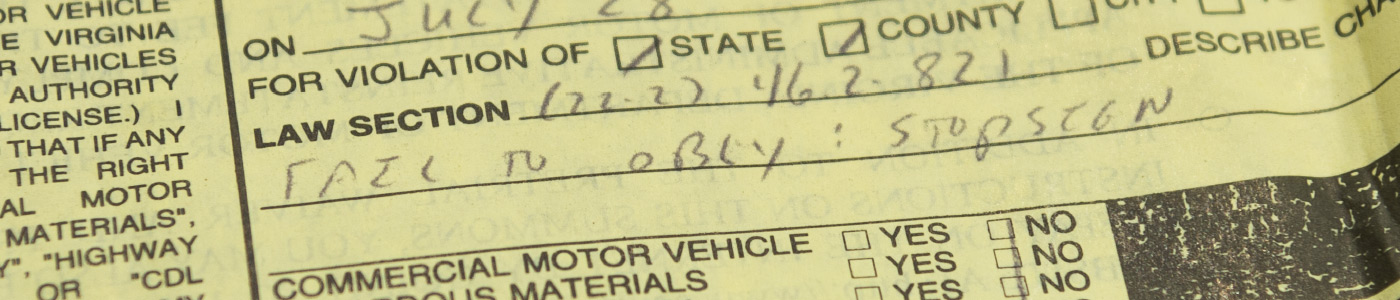 OR VEHICLE
E VIRGINIA
R VEHICLES
AUTHORITY
LICENSE.) I
THAT IF ANY
THE RIGHT
AL MOTOR
MATERIALS",
Y", "HIGHWAY
OR "CDL
ON JULY 28
FOR VIOLATION OF STATE COUNTY
LAW SECTION (22-27 46.2-821 DESCRIBE
FAIL TO OBEY: STOPSIGN
COMMERCIAL MOTOR VEHICLE YES NO
MATERIALS YES NO
YES NO